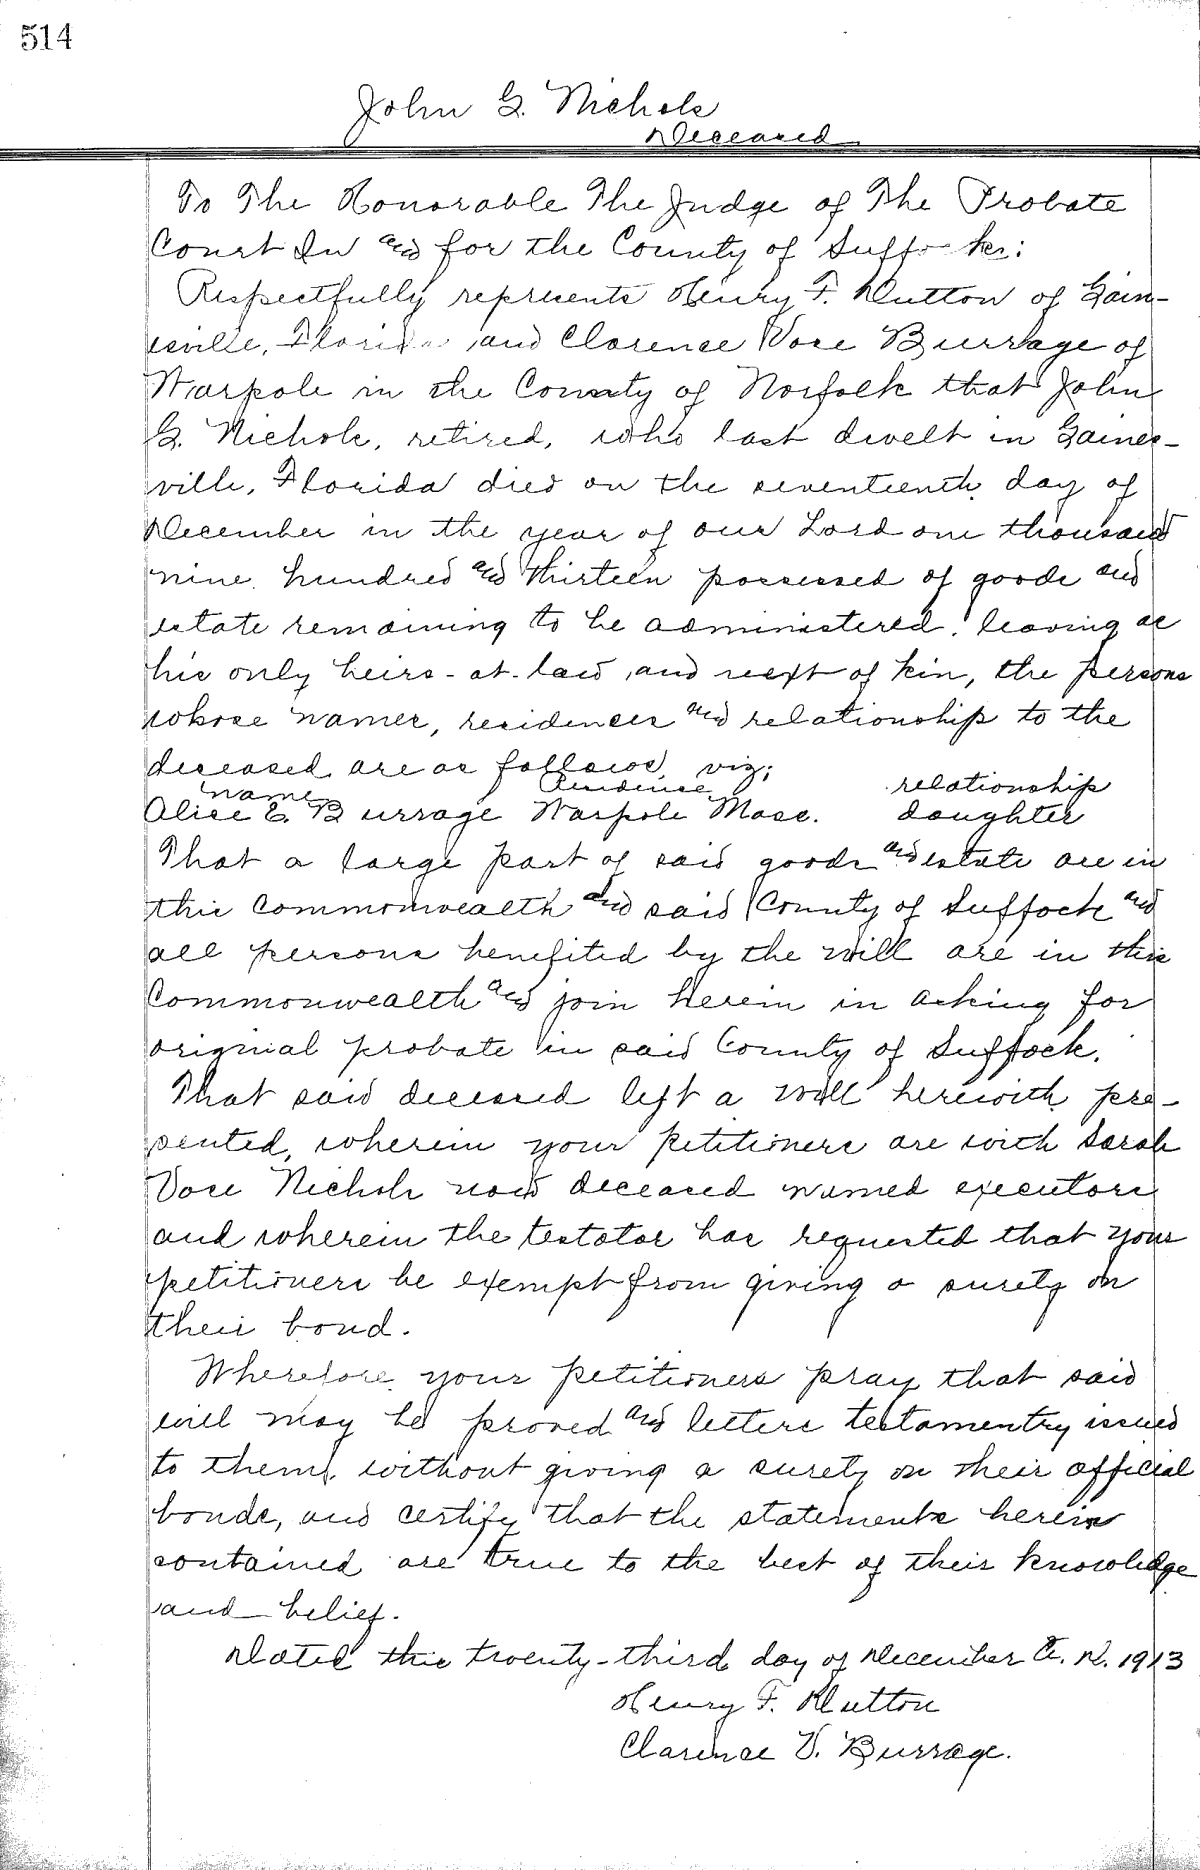 514
John G. Nichols
Deceased
To The Honorable The Judge of The Probate
Court In and for the County of Suffolk:
Respectfully represents Henry F. Dutton of Gain-
esville, Florida and Clarence Vose Burrage of
Warpole in the County of Norfolk that John
G. Nichols, retired, who last dwelt in Gaines-
ville, Florida died on the seventeenth day of
December in the year of our Lord one thousand
nine hundred and thirteen possessed of goods and
estate remaining to be administered, leaving as
his only heirs-at-law and next of kin, the persons
whose names, residences and relationship to the
deceased are as follows, viz;
name residence relationship
Alice E. Burrage Warpole Mass. daughter
That a large part of said goods and estate are in
this Commonwealth and said County of Suffock and
all persons benefited by the will are in this
Commonwealth and join herein in asking for
original probate in said County of Suffock.
That said deceased left a will herewith pre-
sented, wherein your petitioners are with Sarah
Vose Nichols now deceased named executors
and wherein the testator has requested that your
petitioners be exempt from giving a surety on
their bond.
Wherefore your petitioners pray that said
will may be proved and letters testamentry issued
to them, without giving a surety on their official
bonds, and certify that the statements herein
contained are true to the best of their knowledge
and belief.
Dated this twenty-third day of December A.D. 1913
Henry F. Dutton
Clarence V. Burrage.